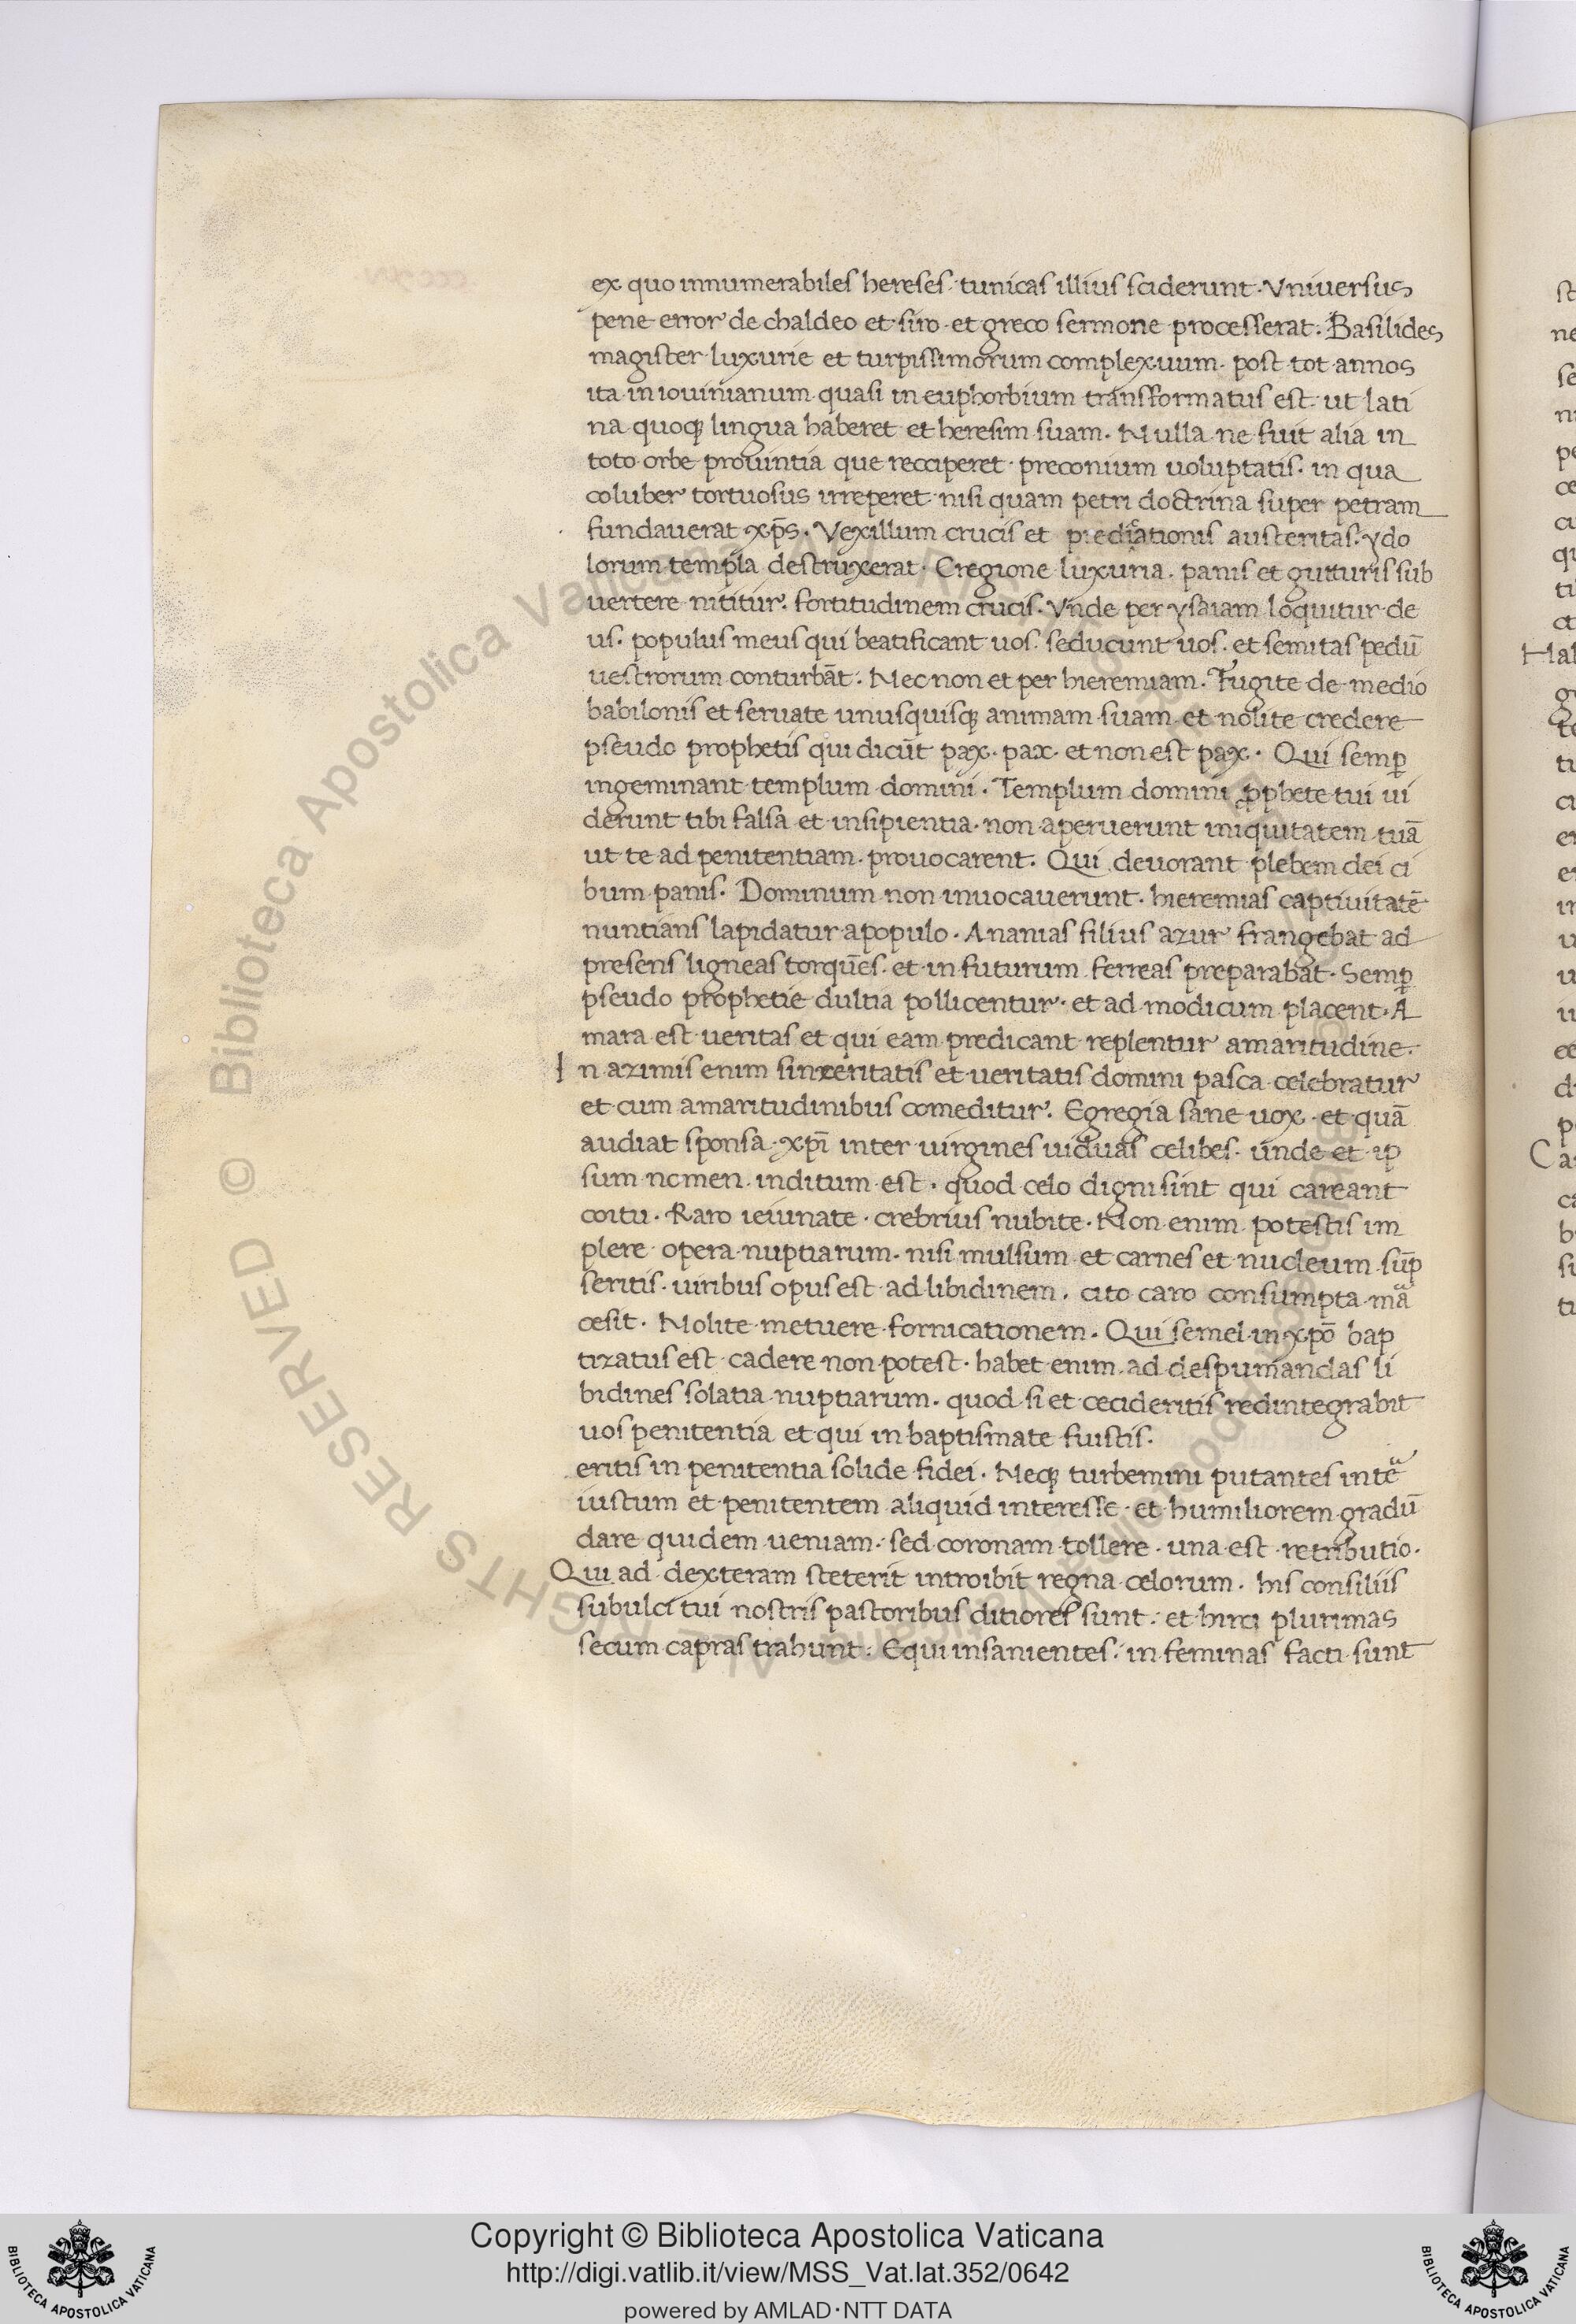 ex quo innumerabiles hereses· tunicas illius sciderunt· Vniuersus
pene error de chaldeo et siro· et greco sermone processerat· Basilides
magister luxurie et turpissimorum complexuum· post tot annos
ita in iouinianum quasi in euphorbium transformatus est· ut lati
na quoq; lingua haberet et heresim suam· Nulla ne fuit alia in
toto orbe prouintia que recciperet preconium uoluptatis· in qua
coluber tortuosus irreperet nisi quam petri doctrina super petram
fundauerat xp̄s· Vexillum crucis et predicationis austeritas· ydo
lorum templa destruxerat· Eregione luxuria· panis et gutturis sub
uertere nititur· fortitudinem crucis· Vnde per ysaiam loquitur de
us· populus meus qui beatificant uos· seducunt uos· et semitas pedū
uestrorum conturbāt· Nec non et per hieremiam· Fugite de medio
babilonis et seruate unusquisq; animam suam et nolite credere
pseudo prophetis qui dicūt pax· pax· et non est pax· Qui semꝑ
ingeminant templum domini· Templum domini ꝓphete tui ui
derunt tibi falsa et insipientia· non aperuerunt iniquitatem tuā
ut te ad penitentiam· prouocarent· Qui deuorant plebem dei ci
bum panis· Dominum non inuocauerunt· hieremias captiuitatē
nuntians lapidatur apopulo· Ananias filius azur frangebat ad
presens ligneas torquēs· et in futurum ferreas preparabat· Semꝑ
pseudo prophetie dultia pollicentur· et ad modicum placent· A
mara est ueritas et qui eam predicant replentur amaritudine·
In azimis enim sinceritatis et ueritatis domini pasca celebratur
et cum amaritudinibus comeditur· Egregia sane uox· et quā
audiat sponsa xp̄i inter uirgines uiduas celibes· unde et ip
sum nomen inditum est· quod celo digni sint qui careant
coitu· Raro ieiunate· crebrius nubite· Non enim potestis im
plere opera nuptiarum· nisi mulsum et carnes et nucleum sūp
seritis· uiribus opus est ad libidinem· cito caro consumpta mᵃ
cesit· Nolite metuere fornicationem· Qui semel in xp̄o bap
tizatus est cadere non potest· habet enim ad despumandas li
bidines solatia nuptiarum· quod si et cecideritis redintegrabit
uos penitentia et qui in baptismate fuistis·
eritis in penitentia solide fidei· Neq; turbemini putantes inte
iustum et penitentem aliquid interesse· et humiliorem gradū
dare quidem ueniam· sed coronam tollere· una est retributio·
Qui ad dexteram steterit introibit regna celorum· his consiliis
subulci tui nostris pastoribus ditiores sunt· et hirci plurimas
secum capras trahunt· Equi insanientes· in feminas facti sunt
Copyright © Biblioteca Apostolica Vaticana
http://digi.vatlib.it/view/MSS_Vat.lat.352/0642
powered by AMLAD·NTT DATA